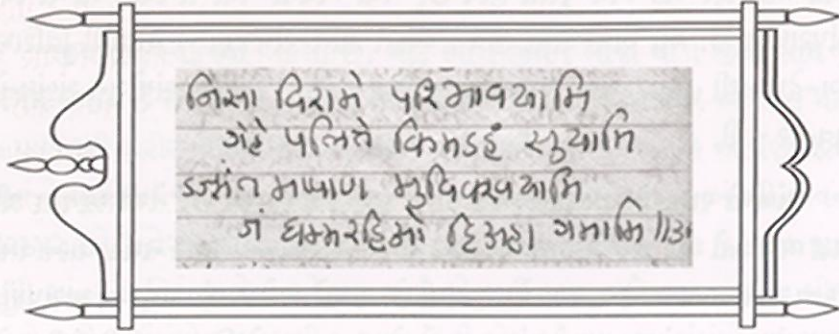 निसा विरामे परिभावयामि
गेहे पलित्ते किमऽहं सुयामि
डज्झंत मप्पाण मुविक्खयामि
जं धम्मरहिओ दिअहा गमामि ॥